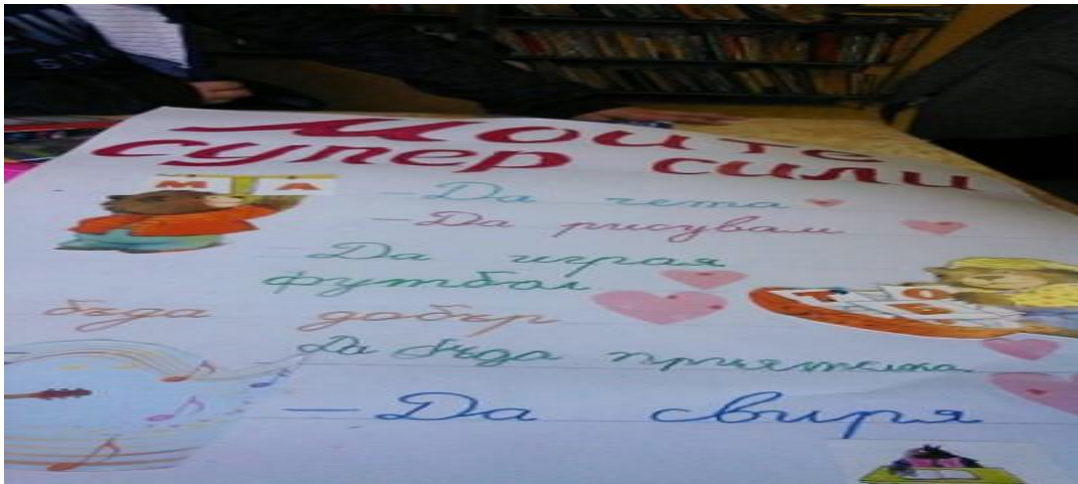 Моите
супер сили
М А
– Да чета
– Да рисувам
Да играя
футбол
бъда добър
Да бъда приятел
– Да свиря
Т О
Б